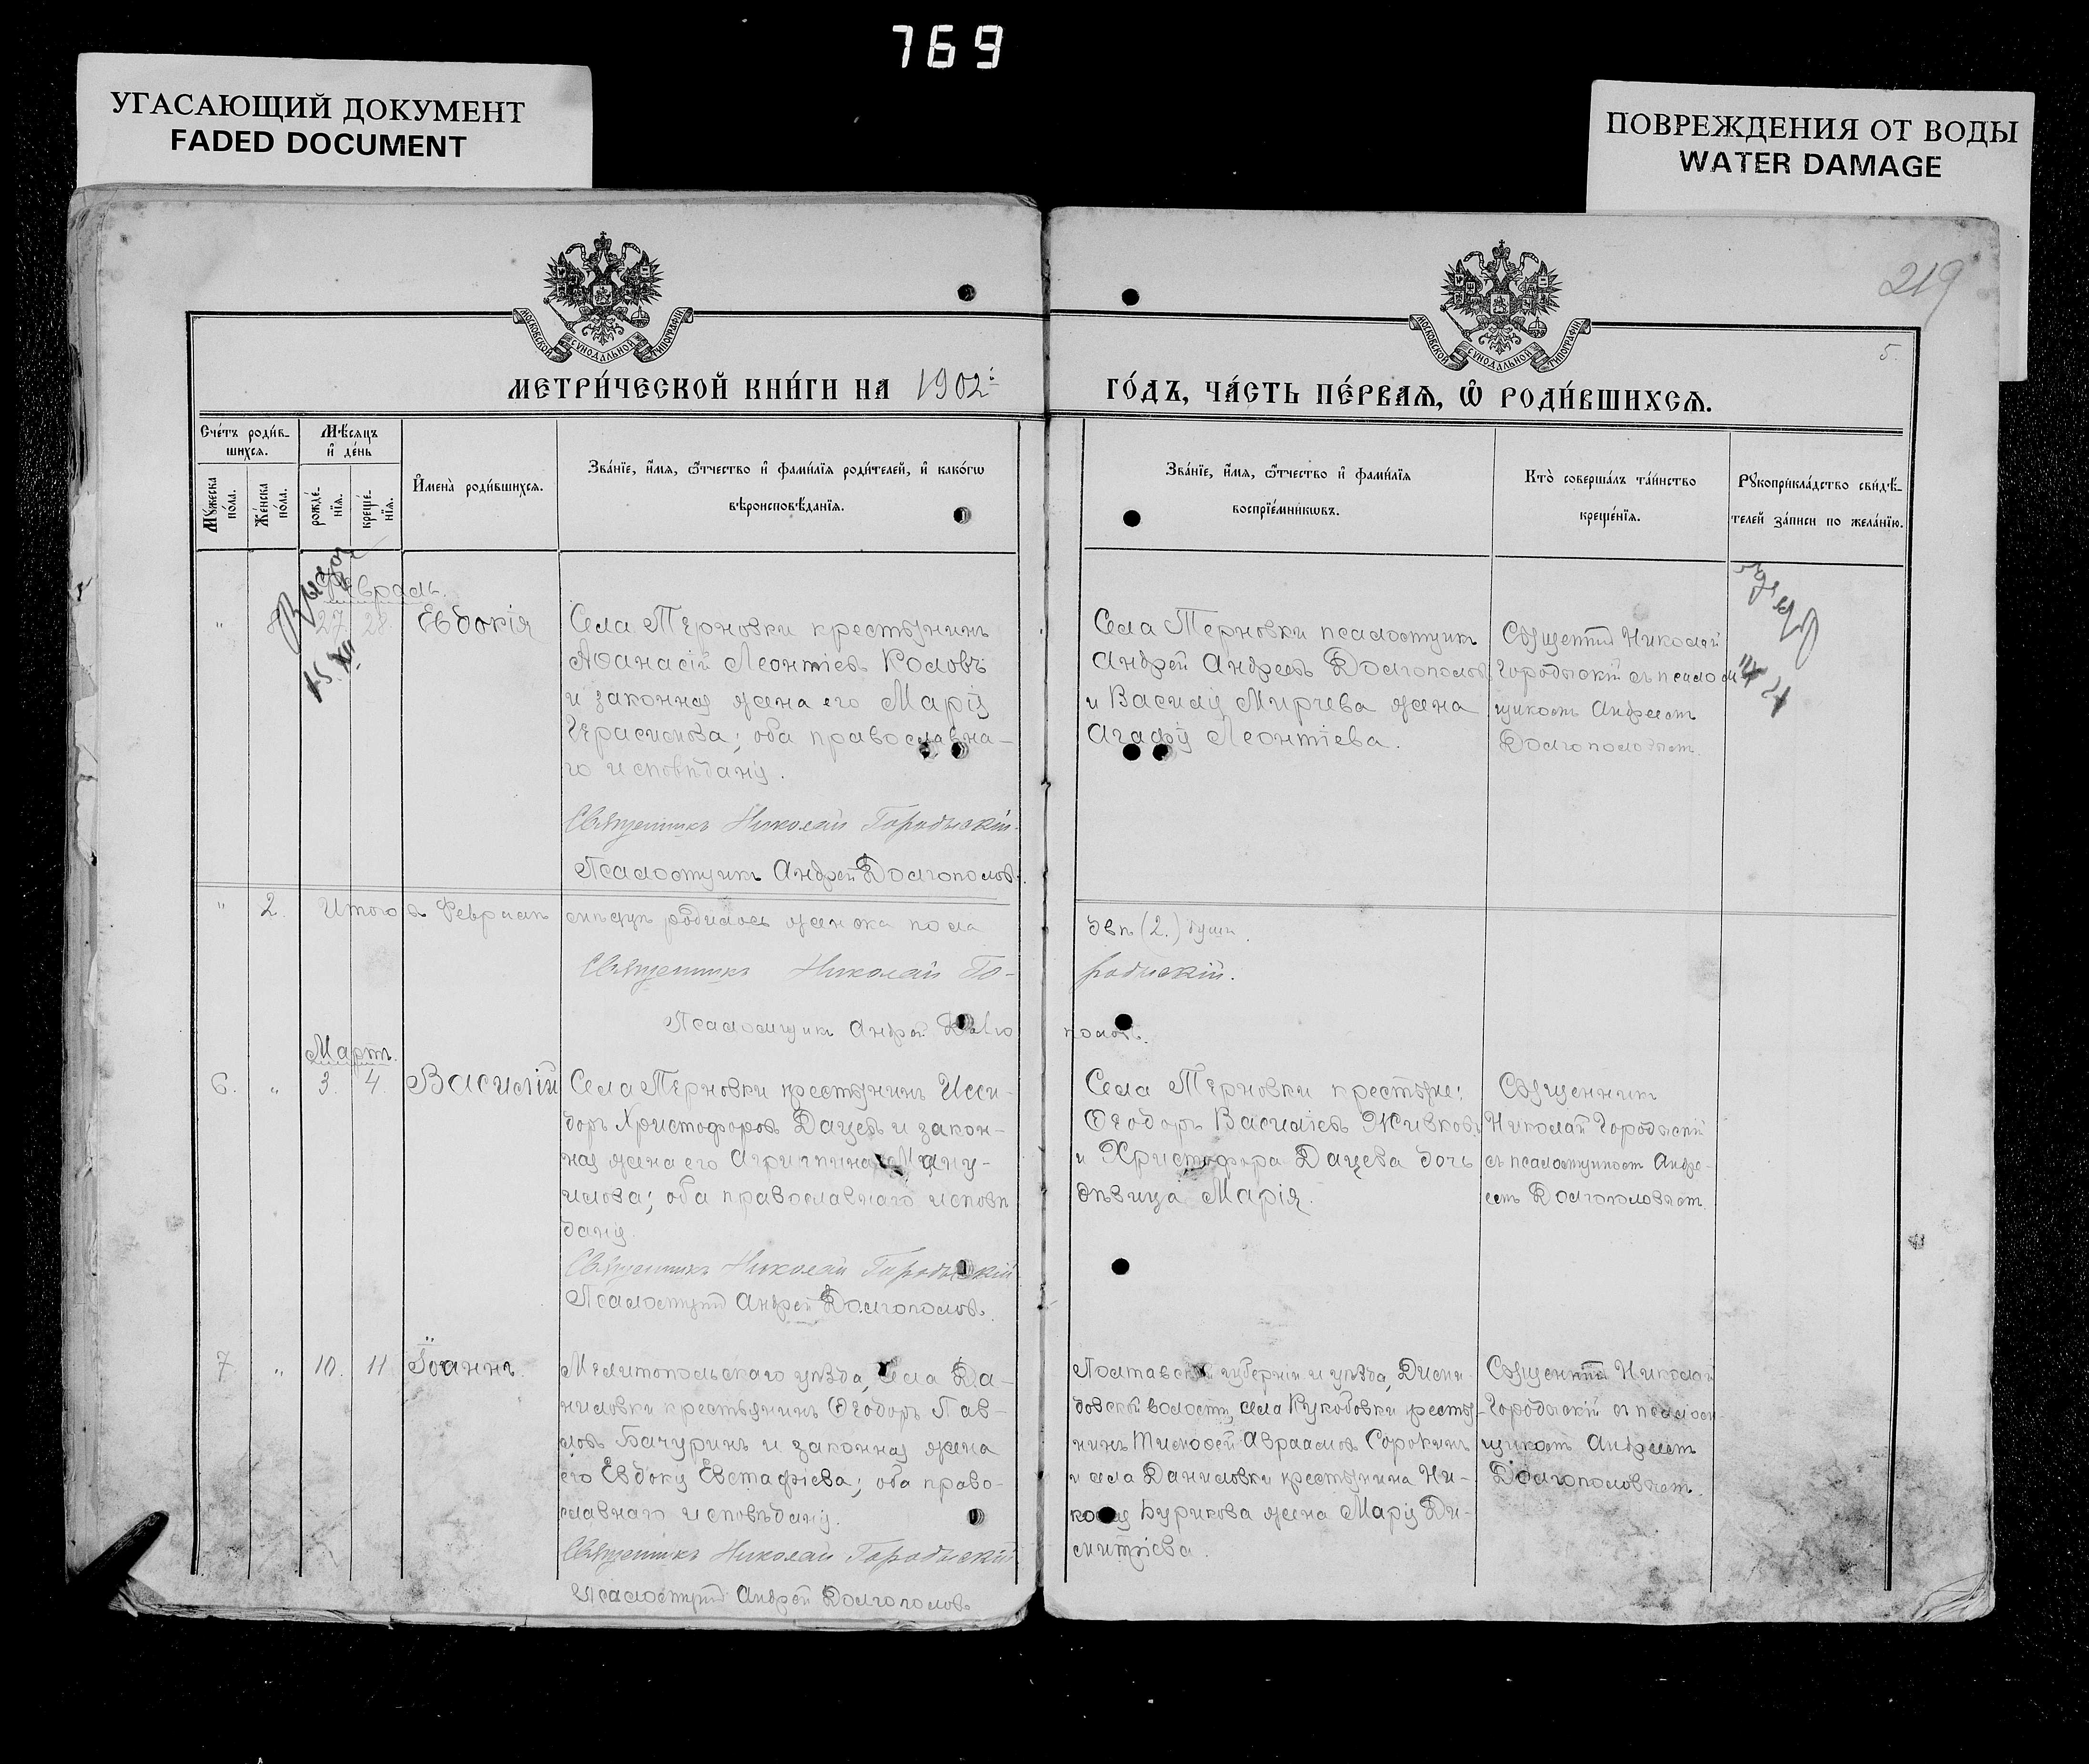 769
УГАСАЮЩИЙ ДОКУМЕНТ
FADED DOCUMENT
ПОВРЕЖДЕНИЯ ОТ ВОДЫ
WATER DAMAGE
219
5.
МОСКОВСКОЙ СѴНОДАЛЬНОЙ ТИПОГРАФІИ
МОСКОВСКОЙ СѴНОДАЛЬНОЙ ТИПОГРАФІИ
МЕТРИ́ЧЕСКОЙ КНИ́ГИ НА 1902й
ГО́ДЪ, ЧА́СТЬ ПЕ́РВАЯ, Ѡ РОДИ́ВШИХСЯ.
Сче́тъ роди́в-
шихся.
Мꙋжеска по́ла.
Же́нска по́ла.
Мѣ́сяцъ
и҆ де́нь
рожде́-
нїя.
креще́-
нїя.
И҆мена̀ роди́вшихся.
Зва́нїе, и҆́мя, ѻ҆́тчество и҆ фами́лїя роди́телей, и҆ како́гѡ
вѣроисповѣ́данїя.
Зва́нїе, и҆́мя, ѻ҆́тчество и҆ фами́лїя
воспрїе́мникѡвъ.
Кто̀ соверша́лъ та́инство
креще́нїя.
Рꙋкоприкла́дство свидѣ́-
телей за́писи по жела́нїю.
Февраль.
" 27 28 Евдокія
Села Терновки крестьянинъ
Аѳанасій Леонтіевъ Коловъ
и законная жена его Марія
Герасимова; оба православна-
го исповѣданія.
Священникъ Николай Городыскій
Псаломщикъ Андрей Долгополовъ.
Села Терновки псаломщикъ
Андрей Андреевъ Долгополовъ
и Василія Мирчева жена
Агафія Леонтіева.
Священникъ Николай
Городыскій съ псалом
щикомъ Андреемъ
Долгополовымъ.
" 2. Итого въ Февралѣ мѣсяцѣ родилось женска пола двѣ (2.) души.
Священникъ Николай Городыскій.
Псаломщикъ Андрей Долгополовъ.
Мартъ.
6. " 3. 4. Василій
Села Терновки крестьянинъ Иси-
доръ Христофоровъ Дацевъ и закон-
ная жена его Агриппина Ману-
илова; оба православнаго исповѣ
данія.
Священникъ Николай Городыскій
Псаломщикъ Андрей Долгополовъ.
Села Терновки крестьяне:
Ѳеодоръ Василіевъ Живковъ
и Христофора Дацева дочь
дѣвица Марія.
Священникъ
Николай Городыскій
съ псаломщикомъ Андре-
емъ Долгополовымъ.
7. " 10. 11 Іоаннъ.
Мелитопольскаго уѣзда, села Да-
ниловки крестьянинъ Ѳеодоръ Пав-
ловъ Бачуринъ и законная жена
его Евдокія Евстафіева; оба право-
славнаго исповѣданія.
Священникъ Николай Городыскій
Псаломщикъ Андрей Долгополовъ
Полтавской губерніи и уѣзда,
волости, села крестья-
нинъ Тимоѳей Авраамовъ Сорокинъ
и села Даниловки крестьянина Ни-
колая Бурикова жена Марія Ди-
митріева.
Священникъ Николай
Городыскій съ псалом-
щикомъ Андреемъ
Долгополовымъ.